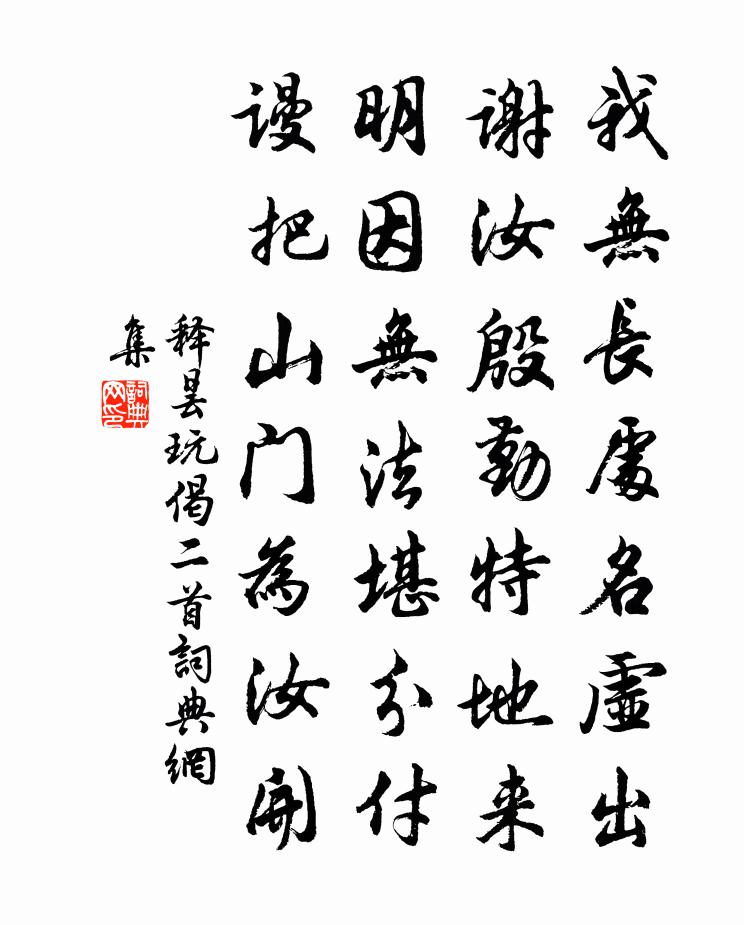 我無長處名虛出
謝汝殷勤特地来
明因無法堪分付
谩把山门為汝開
释昙玩偈二首詞典網
集
詞典
网印